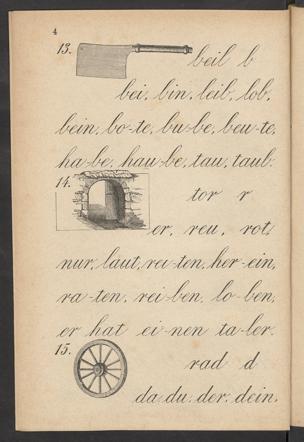 4
13. beil b
bei, bin, leib, lob,
bein, bo-te, bu-be, beu-te,
ha-be, hau-be, tau, taub.
14. tor r
er, reu, rot,
nur, laut, rei-ten, her-ein,
ra-ten, rei-ben, lo-ben,
er hat ei-nen ta-ler.
15. rad d
da, du, der, dein,